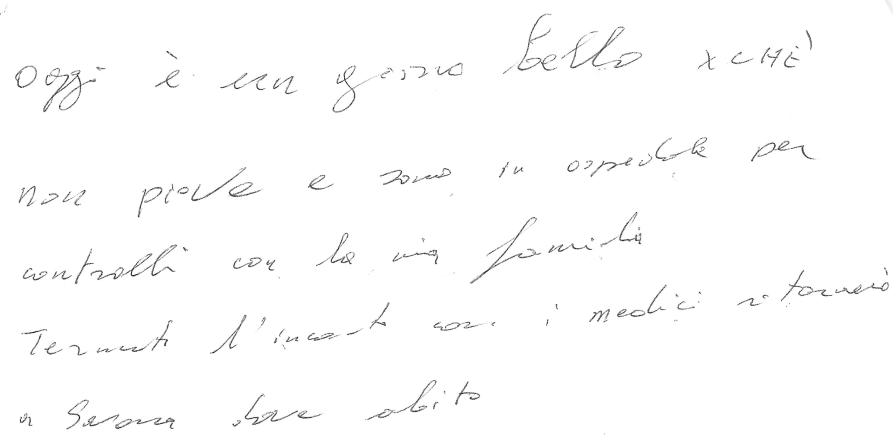 Oggi è un giorno bello xCHÈ
non piove e sono in ospedale per
controlli con la mia famiglia
Terminato l'incontro con i medici ritornerò
a Savona dove abito